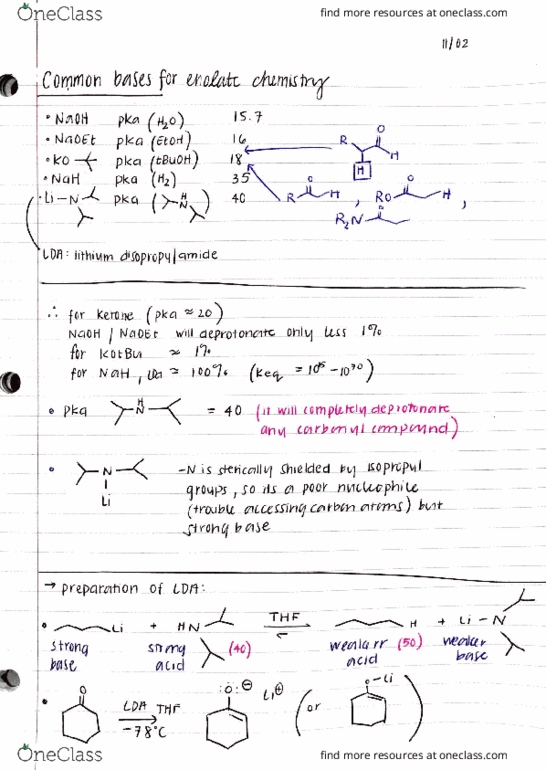 OneClass
find more resources at oneclass.com
11/02
Common bases for enolate chemistry
• NaOH pka (H₂O) 15.7
• NaOEt pka (EtOH) 16
• KO pka (tBuOH) 18
• NaH pka (H₂) 35
• Li-N pka ( N H ) 40
R O H H
R O H , RO O H ,
R₂N O
LDA: lithium disopropylamide
∴ for ketone (pka ≈ 20)
NaOH / NaOEt will deprotonate only less 1%
for KOtBu ≈ 1%
for NaH, LDA ≈ 100% (Keq = 10¹⁵ - 10³⁰)
• pka H N = 40 (it will completely deprotonate
any carbonyl compound)
• N Li
-N is sterically shielded by isopropyl
groups, so its a poor nucleophile
(trouble accessing carbon atoms) but
strong base
→ preparation of LDA:
• Li + HN THF H + Li-N
strong base strong acid (40) weaker acid (50) weaker base
• O LDA THF -78°C :O: ⊖ Li⊕ ( or O-Li )
OneClass
find more resources at oneclass.com